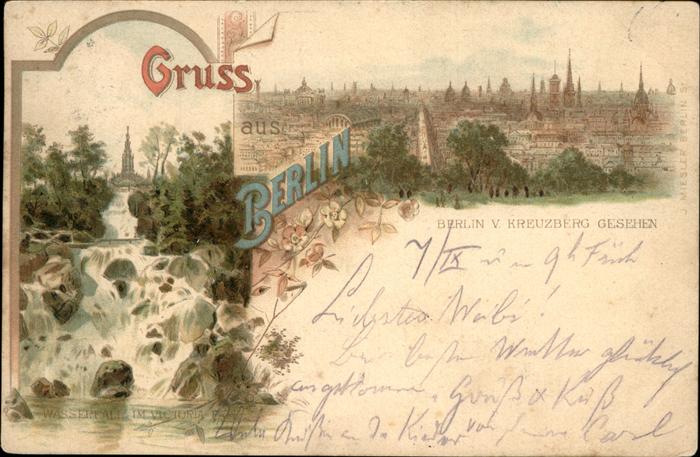 Gruss
aus
BERLIN
BERLIN V. KREUZBERG GESEHEN
WASSERFALL IM VICTORIA P
J. MIESLER BERLIN S.
7/IX 9h Früh
Liebstes Weibi!
glücklich
angekommen. Gruß & Kuß
an die Kinder von Carl